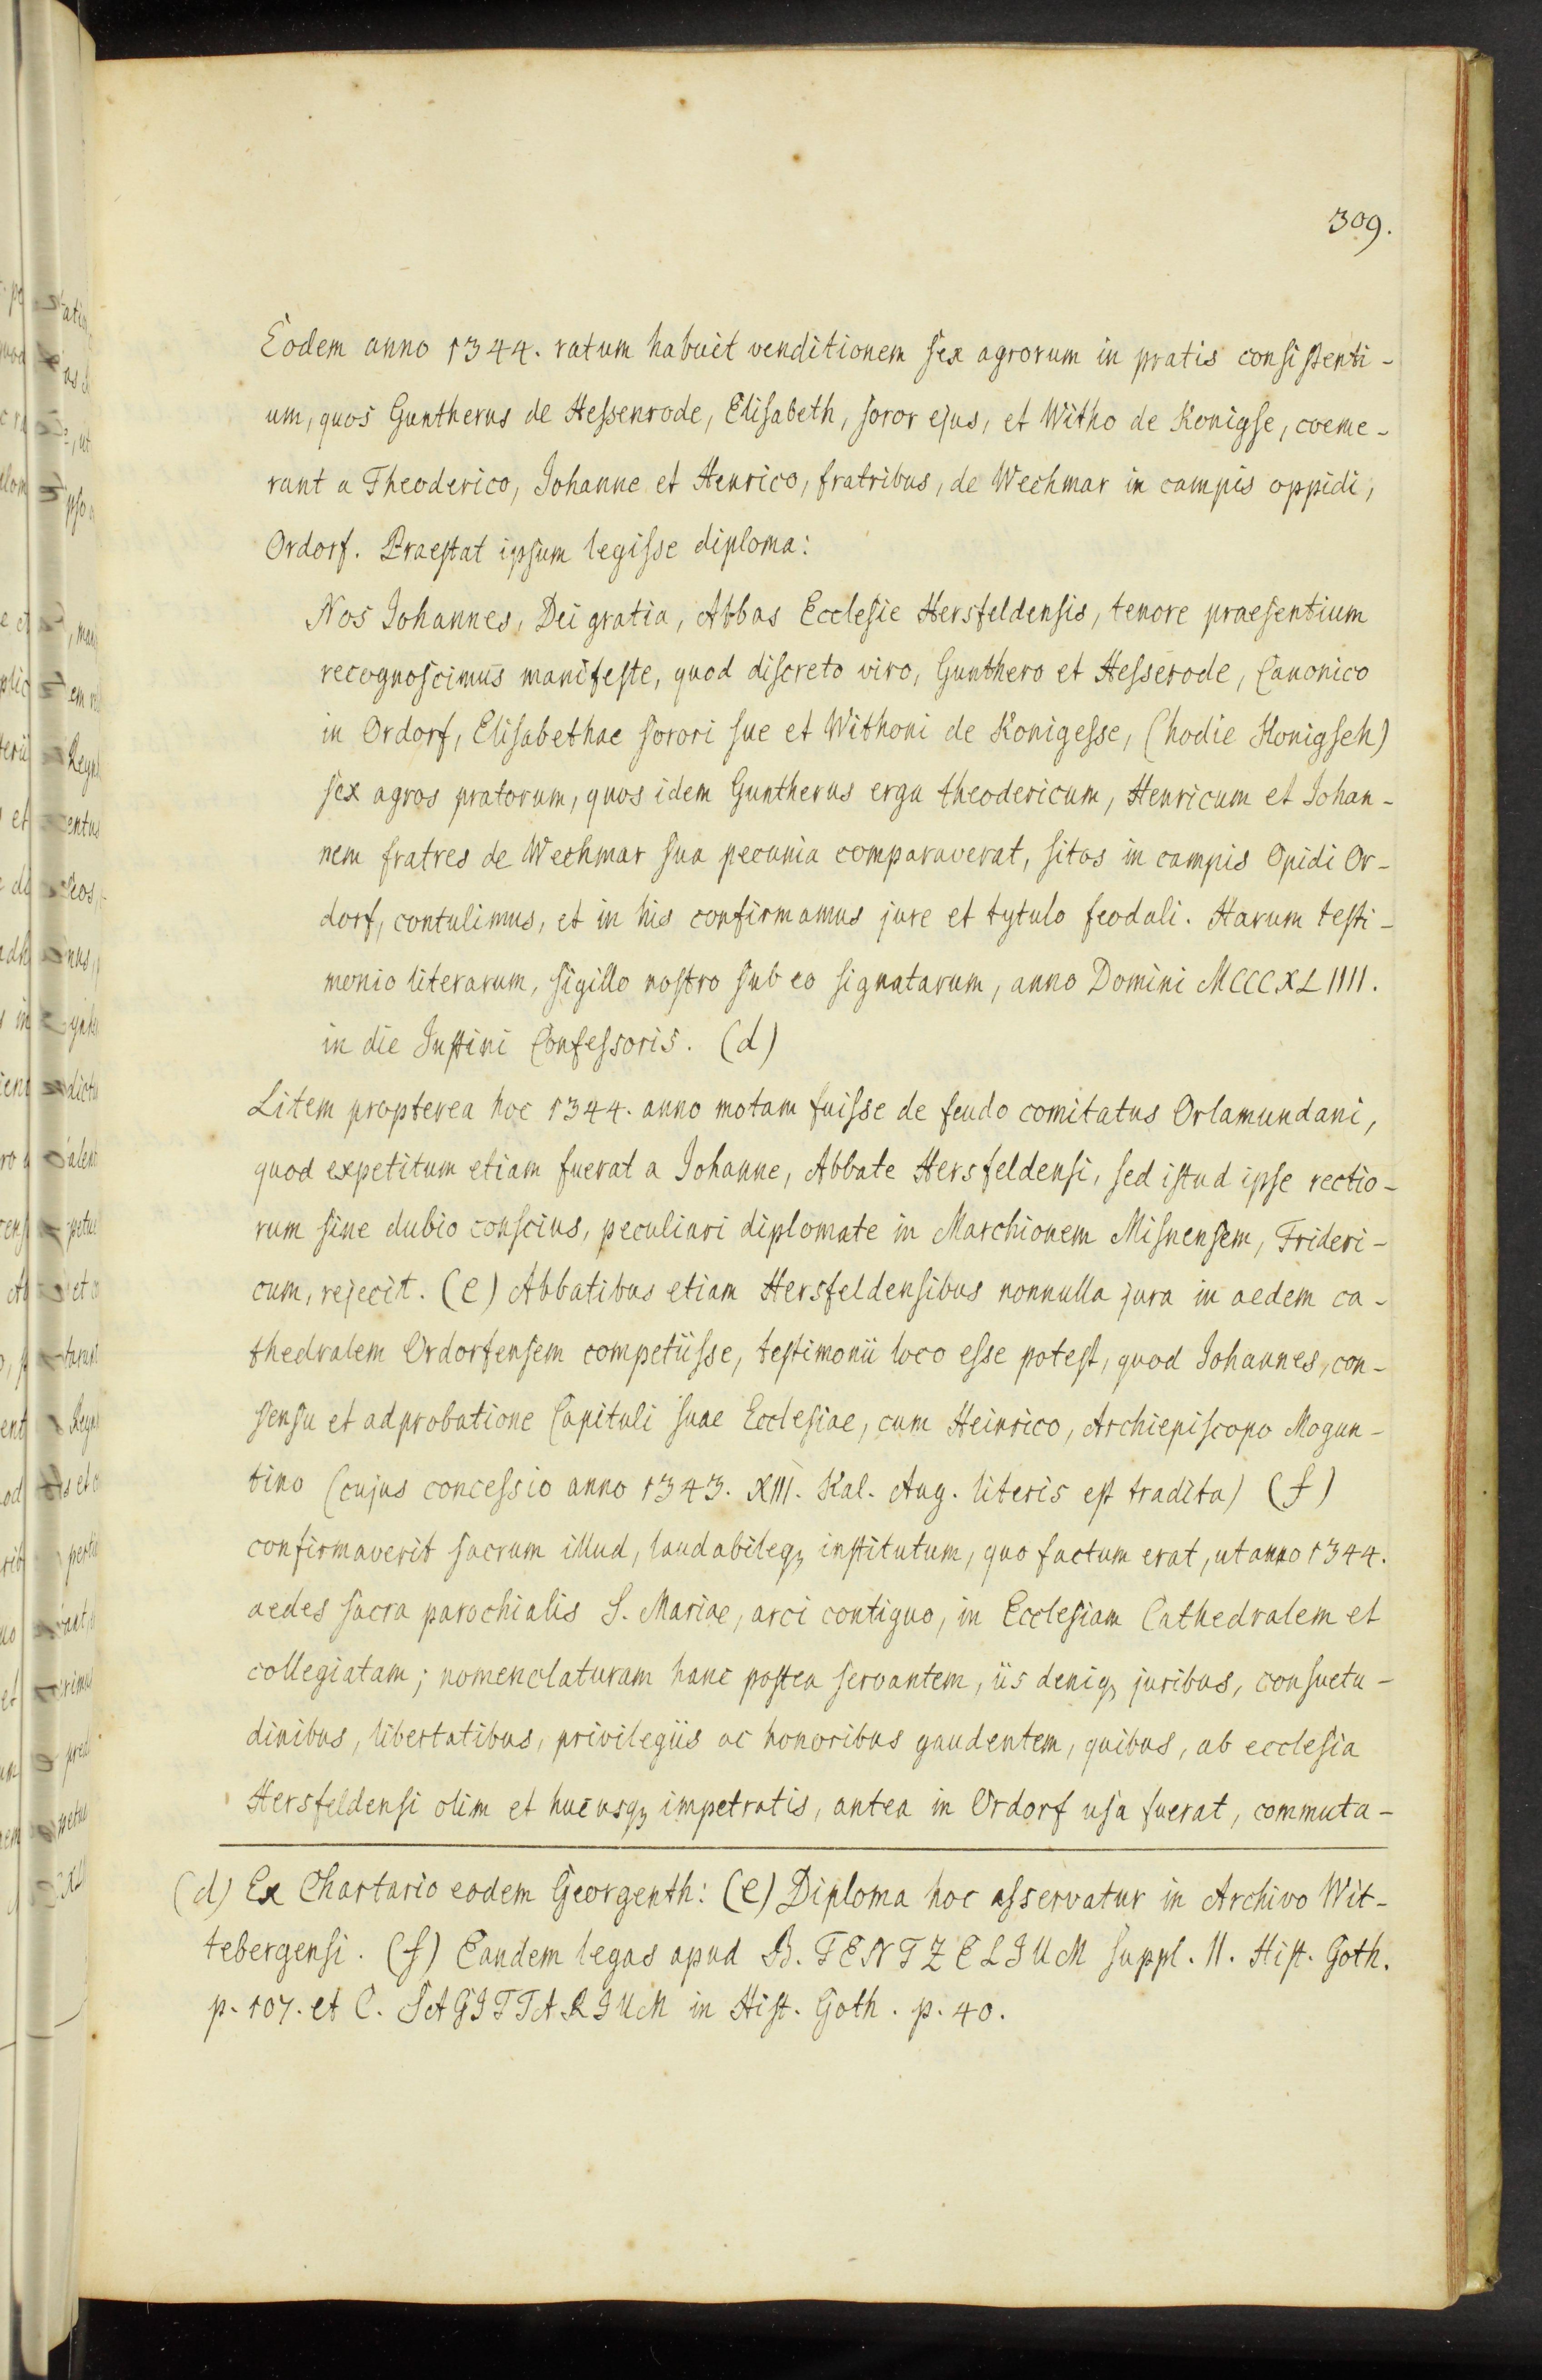 309.
Eodem anno 1344. ratum habuit venditionem sex agrorum in pratis consistenti-
um, quos Guntherus de Hessenrode, Elisabeth, soror ejus, et Witho de Konigse, coeme-
rant a Theoderico, Johanne et Henrico, fratribus, de Wechmar in campis oppidi,
Ordorf. Praestat ipsum legisse diploma:
Nos Johannes, Dei gratia, Abbas Ecclesie Hersfeldensis, tenore praesentium
recognoscimus manifeste, quod discreto viro, Gunthero et Hesserode, Canonico
in Ordorf, Elisabethae sorori sue et Withoni de Konigesse, (hodie Konigseh)
sex agros pratorum, quos idem Guntherus erga theodericum, Henricum et Johan-
nem fratres de Wechmar sua pecunia comparaverat, sitos in campis Opidi Or-
dorf, contulimus, et in his confirmamus jure et tytulo feodali. Harum testi-
monio literarum, sigillo nostro sub eo signatarum, anno Domini MCCCXLIIII.
in die Justini Confessoris. (d)
Litem propterea hoc 1344. anno motam fuisse de feudo comitatus Orlamundani,
quod expetitum etiam fuerat a Johanne, Abbate Hersfeldensi, sed istud ipse rectio-
rum sine dubio conscius, peculiari diplomate in Marchionem Misnensem, Frideri-
cum, rejecit. (e) Abbatibus etiam Hersfeldensibus nonnulla jura in aedem ca-
thedralem Ordorfensem competiisse, testimonii loco esse potest, quod Johannes, con-
sensu et adprobatione Capituli suae Ecclesiae, cum Heinrico, Archiepiscopo Mogun-
tino (cujus concessio anno 1343. XIII. Kal. Aug. literis est tradita) (f)
confirmaverit sacrum illud, laudabileqz institutum, quo factum erat, ut anno 1344.
aedes sacra parochialis S. Mariae, arci contiguo, in Ecclesiam Cathedralem et
collegiatam; nomenclaturam hanc postea servantem, iis deniqz juribus, consuetu-
dinibus, libertatibus, privilegiis ac honoribus gaudentem, quibus, ab ecclesia
Hersfeldensi olim et hucusqz impetratis, antea in Ordorf usa fuerat, commuta-
(d) Ex Chartario eodem Georgenth: (e) Diploma hoc asservatur in Archivo Wit-
tebergensi. (f) Eandem legas apud B. TENTZELIUM suppl. II. Hist. Goth.
p. 107. et C. SAGITTARIUM in Hist. Goth. p. 40.